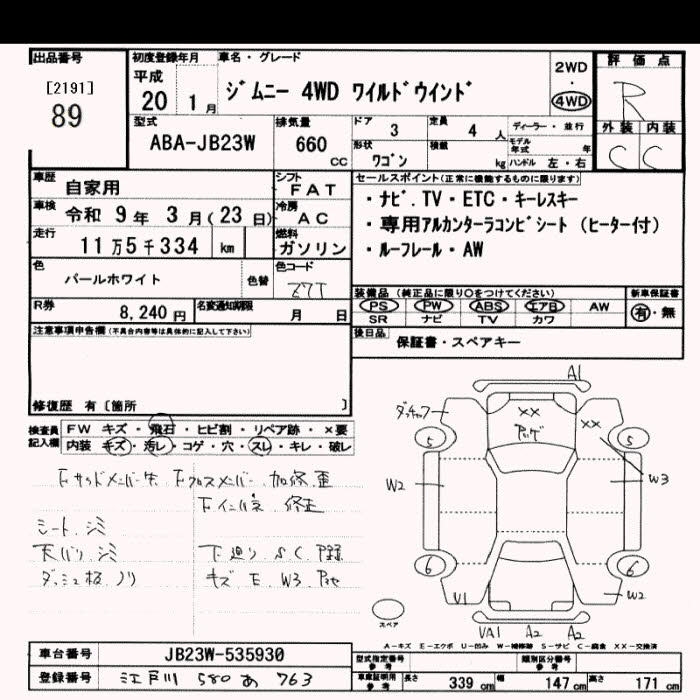 出品番号
[2191]
89
初度登録年月 車名・グレード
平成
20 1月
ジムニー 4WD ワイルドウインド
2WD
4WD
評価点
R
外装 内装
C C
型式
ABA-JB23W
排気量
660 cc
ドア 3
定員 4 人
ディーラー・並行
形状 ワゴン
積載 kg
モデル年式 年
ハンドル 左・右
車歴
自家用
シフト
FAT
車検
令和 9年 3月(23日)
冷房
AC
走行
11万5千334 km
燃料
ガソリン
色
パールホワイト
色替
色コード
Z7T
R券
8,240円
名変通知期限
月 日
セールスポイント(正常に機能するものに限ります)
・ナビ.TV・ETC・キーレスキー
・専用アルカンターラコンビシート (ヒーター付)
・ルーフレール・AW
装備品 (純正品に限り○をつけてください)
新車保証書
PS PW ABS エアB AW
SR ナビ TV カワ
有・無
後日品
保証書・スペアキー
注意事項申告欄 (不具合内容等は具体的に記入して下さい)
修復歴 有〔箇所 〕
検査員記入欄
FW キズ・飛石・ヒビ割・リペア跡・×要
内装 キズ・汚レ・コゲ・穴・スレ・キレ・破レ
シート、シミ
天バリ、シミ
A1
××
××
5 5
W2
W3
6 6
V1
W2
VA1 A2 A2
スペア
A-キズ E-エクボ U-凹み W-補修跡 S-サビ C-腐食 XX-交換済
車台番号
JB23W-535930
登録番号
江戸川 580 あ 763
型式指定番号 参考
類別区分番号 参考
車庫証明用 参考
長さ 339 cm
幅 147 cm
高さ 171 cm